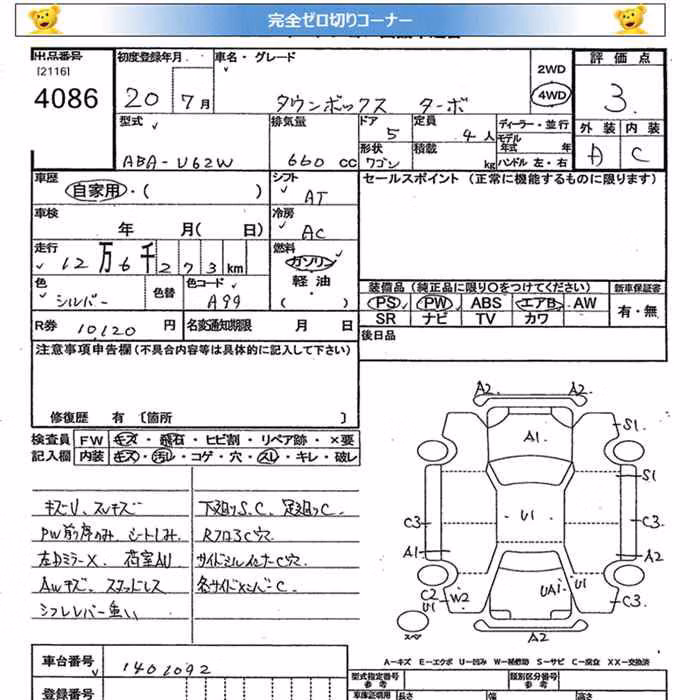 完全ゼロ切りコーナー
出品番号 初度登録年月 車名・グレード 評価点
[2116]
4086 20 7月 タウンボックス ターボ 2WD 4WD 3
型式 排気量 ドア 定員 ディーラー・並行 外装 内装
ABA-U62W 660 CC 5 4人 モデル 年式 年 A C
形状 ワゴン 積載 kg ハンドル 左・右
車歴 シフト セールスポイント (正常に機能するものに限ります)
自家用・( ) AT
車検 冷房
年 月( 日) AC
走行 燃料
12万6千273km ガソリン
色 色替 色コード 軽油 装備品 (純正品に限り○をつけてください) 新車保証書
シルバー A99 ( ) PS PW ABS エアB AW 有・無
SR ナビ TV カワ
R券 10,120円 名変通知期限 月 日 後日品
注意事項申告欄 (不具合内容等は具体的に記入して下さい)
修復歴 有 [箇所 ]
検査員 FW キズ・飛石・ヒビ割・リペア跡・×要
記入欄 内装 キズ・汚レ・コゲ・穴・スレ・キレ・破レ
キズU、スレキズ 下廻りS.C、足廻りC
PW前席のみ シートしみ RフロアC穴
左DミラーX 荷室AU サイドシルインナーC穴
Awキズ スタッドレス 各サイドメンバーC
シフトレバー重い
A2 A2
A1 S1
S1
U1
C3 C3
A1 A2
C2 U1 W2 UA1 U1 C3
スペア A2
A-キズ E-エクボ U-凹み W-補修跡 S-サビ C-腐食 XX-交換済
車台番号 1401092
登録番号
型式指定番号 参考 類別区分番号 参考
車庫証明用 長さ 幅 高さ